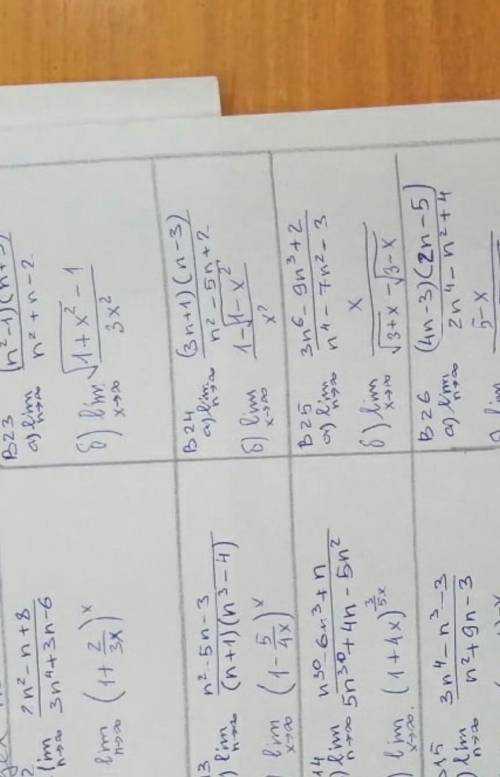 2
lim n→∞ (2n² - n + 8)/(3n⁴ + 3n - 6)
lim n→∞ (1 + 2/3x)ˣ
13
lim n→∞ (n² - 5n - 3)/((n+1)(n³ - 4))
lim x→∞ (1 - 5/4x)ˣ
14
lim n→∞ (n³⁰ - 6n³ + n)/(5n³⁰ + 4n - 5n²)
lim x→∞ (1 + 4x)^(3/5x)
B15
lim n→∞ (3n⁴ - n³ - 3)/(n² + 9n - 3)
B23
а) lim n→∞ (n² - 1)(n + )/(n² + n - 2)
б) lim x→∞ (√(1 + x²) - 1)/(3x²)
B24
а) lim n→∞ (3n+1)(n-3)/(n² - 5n + 2)
б) lim x→∞ (1 - √(1 - x²))/x²
B25
а) lim n→∞ (3n⁶ - 9n³ + 2)/(n⁴ - 7n² - 3)
б) lim x→∞ x/(√(3+x) - √(3-x))
B26
а) lim n→∞ (4n-3)(2n-5)/(2n⁴ - n² + 4)
lim 5-x